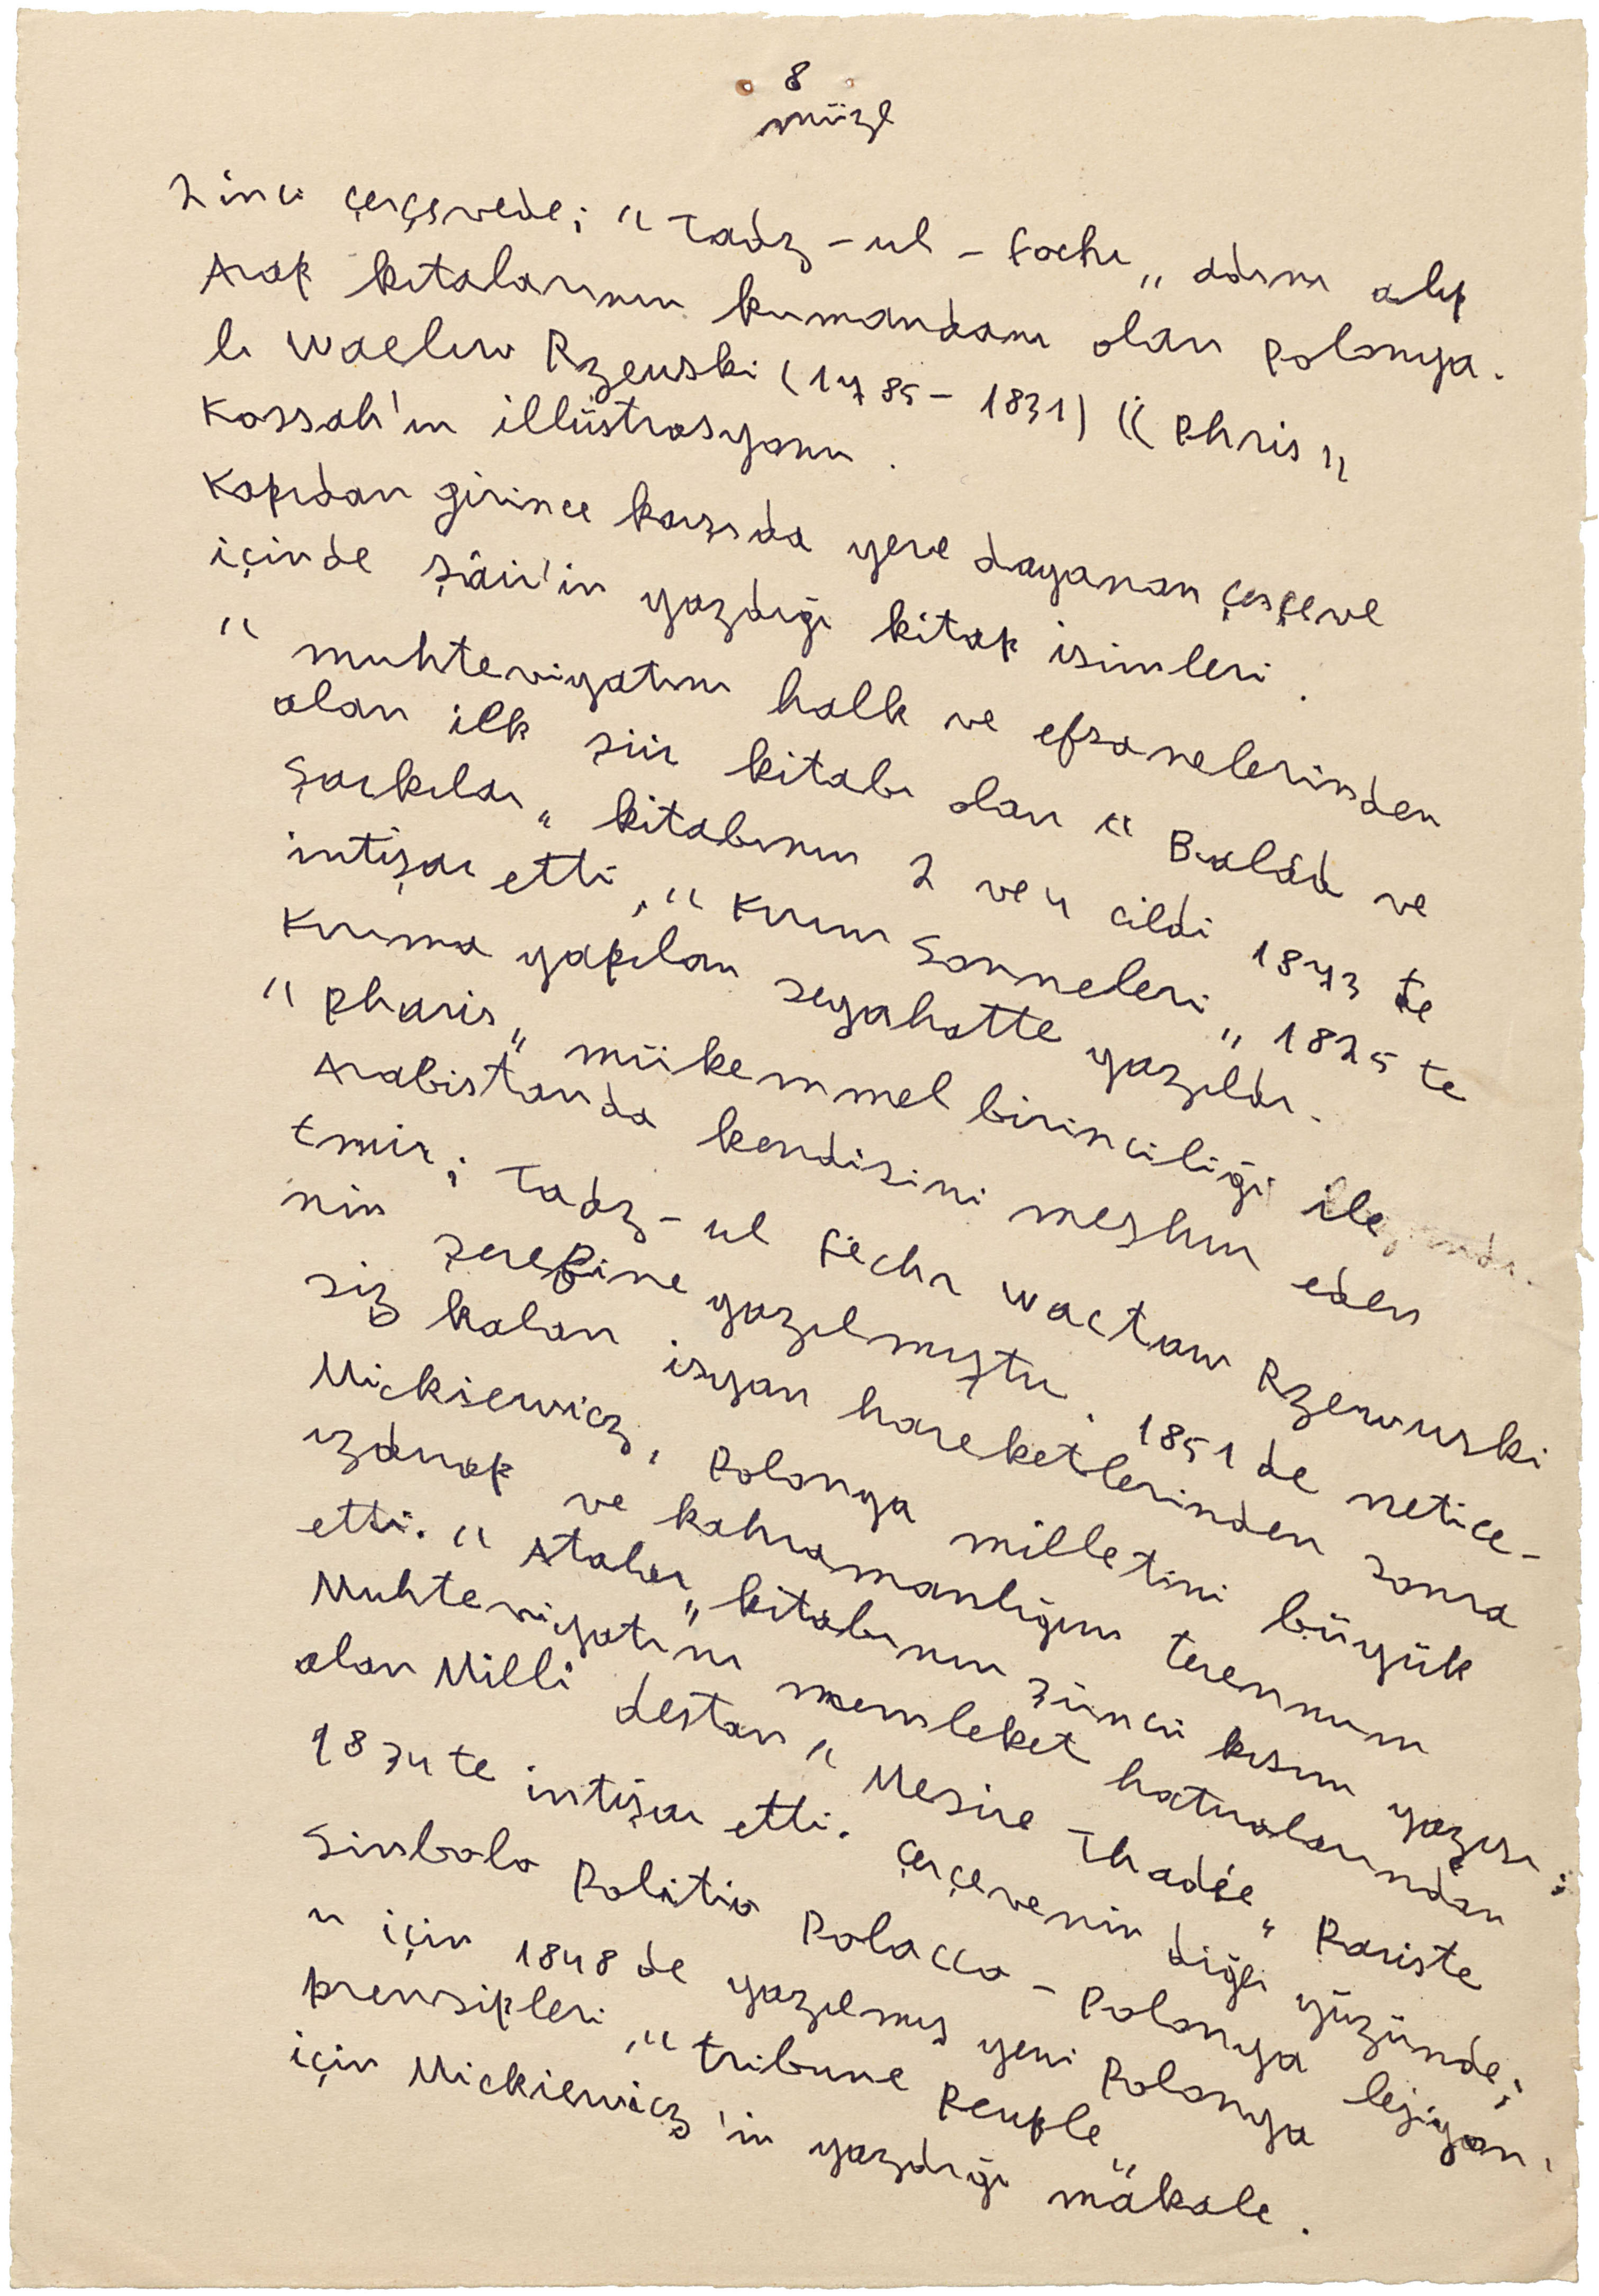 8
müze
2 inci çerçevede; “Tadz-ul-Fechr„ adını alıp
Arap kıtalarının kumandanı olan Polonya-
lı Waclaw Rzewski (1785-1831) “Phris„
Kossak'ın illüstrasyonu.
Kapıdan girince karşıda yere dayanan çerçeve
içinde şâir'in yazdığı kitap isimleri.
“muhteviyatını halk ve efsanelerinden
alan ilk şiir kitabı olan “Balâd ve
Şarkılar„ kitabının 2 ve 4 cildi 1873 te
intişar etti, “Kırım Sonneleri„ 1825 te
Kırıma yapılan seyahatte yazıldı.
“Pharis„ mükemmel binciliği ile,
Arabistanda kendisini meşhur eden
Emir; Tadz-ul Fechr Wactaw Rzewuski
nin şerefine yazılmıştır. 1851 de netice-
siz kalan isyan hareketlerinden sonra
Mickiewicz, Polonya milletini büyük
ızdırap ve kahramanlığını terennüm
etti. “Atalar„ kitabının 3üncü kısım yazısı;
Muhteviyatını memleket hatıralarından
alan Milli destan “Mesire Thadée„ Pariste
1834te intişar etti. Çerçevenin diğer yüzünde;
Simbolo Politio Polacco - Polonya lejyon-
u için 1848 de yazılmış yeni Polonya
prensipleri, “tribune Peuple„
için Mickiewicz'in yazdığı mâkale.